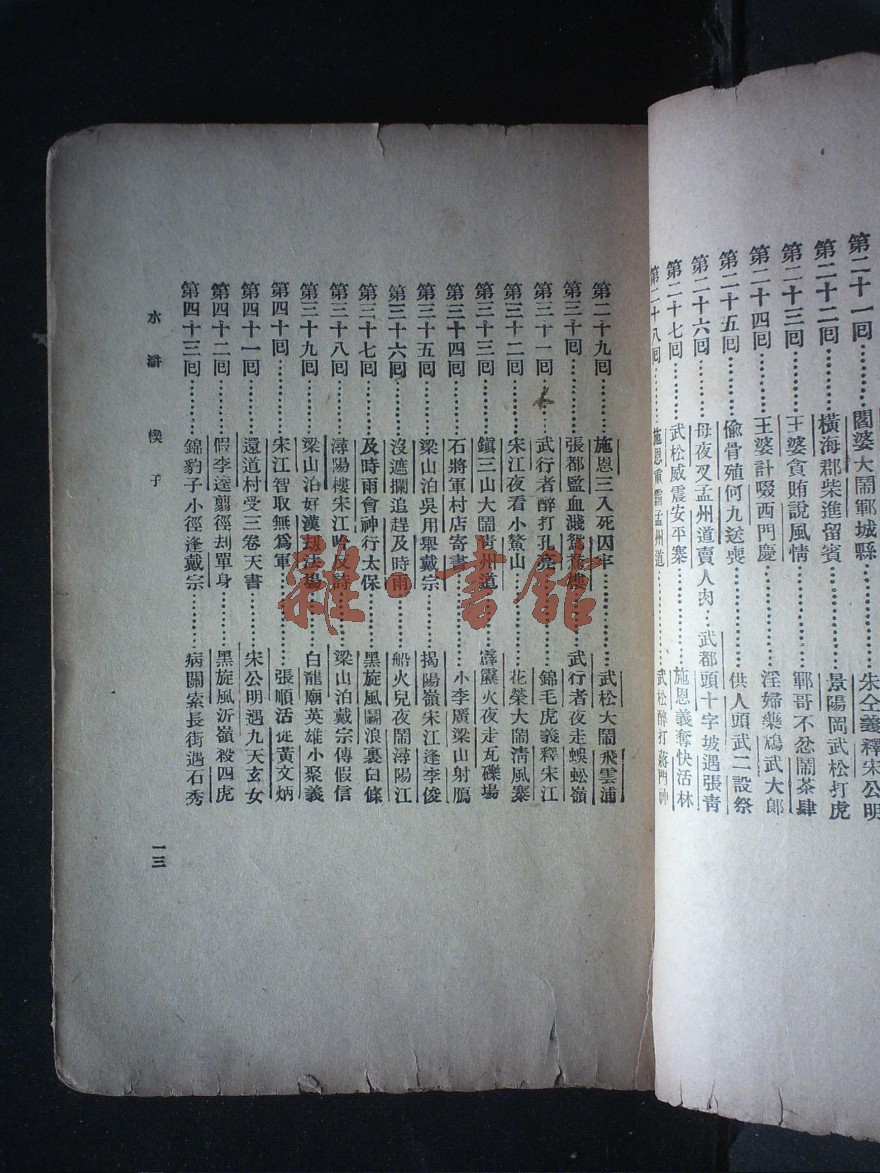 第二十一回………閻婆大鬧鄆城縣………朱仝義釋宋公明
第二十二回………橫海郡柴進留賓………景陽岡武松打虎
第二十三回………王婆貪賄說風情………鄆哥不忿鬧茶肆
第二十四回………王婆計啜西門慶………淫婦藥鴆武大郎
第二十五回………偷骨殖何九送喪………供人頭武二設祭
第二十六回………母夜叉孟州道賣人肉…武都頭十字坡遇張青
第二十七回………武松威震安平寨………施恩義奪快活林
第二十八回………施恩重霸孟州道………武松醉打蔣門神
第二十九回………施恩三入死囚牢………武松大鬧飛雲浦
第三十回………張都監血濺鴛鴦樓………武行者夜走蜈蚣嶺
第三十一回………武行者醉打孔亮………錦毛虎義釋宋江
第三十二回………宋江夜看小鰲山………花榮大鬧清風寨
第三十三回………鎮三山大鬧青州道………霹靂火夜走瓦礫場
第三十四回………石將軍村店寄書………小李廣梁山射鴈
第三十五回………梁山泊吳用舉戴宗………揭陽嶺宋江逢李俊
第三十六回………沒遮攔追趕及時雨………船火兒夜鬧潯陽江
第三十七回………及時雨會神行太保………黑旋風鬭浪裏白條
第三十八回………潯陽樓宋江吟反詩………梁山泊戴宗傳假信
第三十九回………梁山泊好漢刼法場………白龍廟英雄小聚義
第四十回………宋江智取無爲軍………張順活捉黃文炳
第四十一回………還道村受三卷天書………宋公明遇九天玄女
第四十二回………假李逵翦徑刦單身………黑旋風沂嶺殺四虎
第四十三回………錦豹子小徑逢戴宗………病關索長街遇石秀
水滸 楔子
一三
雜·書館